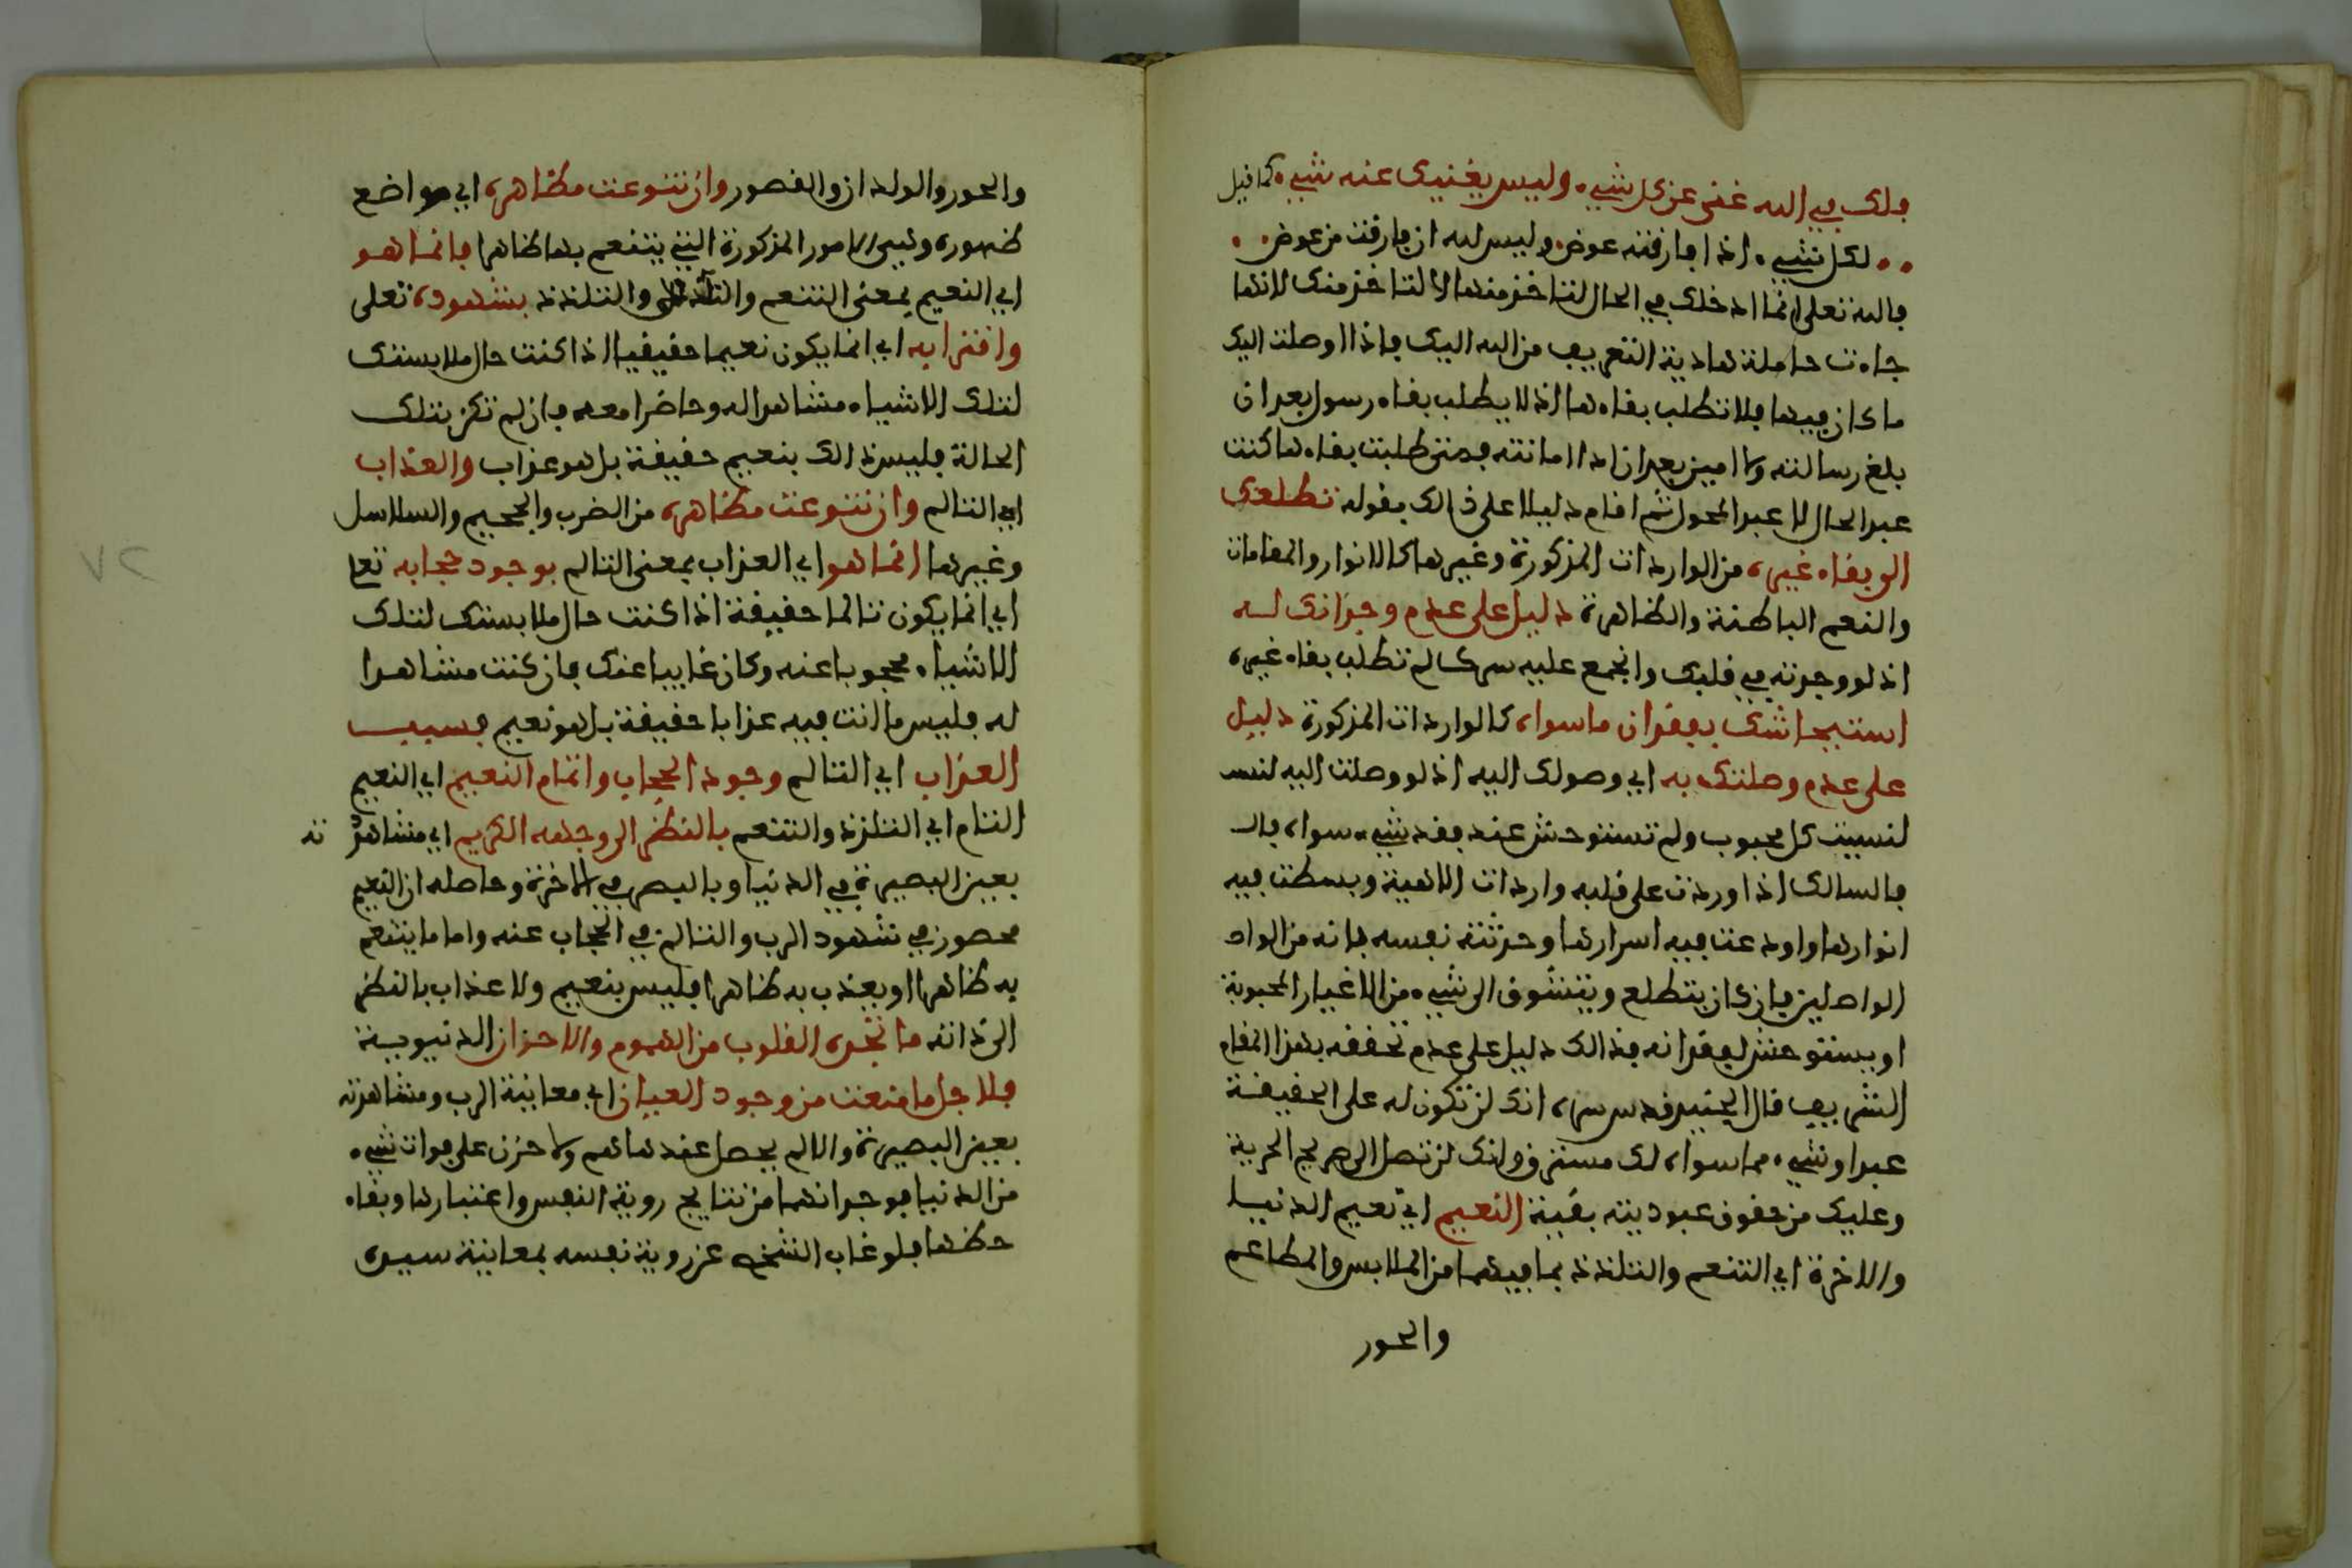 فلك في الله غنى عن كل شيء. وليس يغنيك عنه شيء. كما قيل
لكل شيء. اذا فارقته عوض. وليس لله ان فارقت من عوض
فالله تعلى انما ادخلك في الحال لتاخذ منها لا لتاخذ منك لانها
جاءت حاملة هادية التعريف من الله اليك فاذا اوصلت اليك
ما كان فيها فلا تطلب بقاءها اذ لا يطلب بقاء رسول بعد ان
بلغ رسالته ولا امين بعد ان ادا امانته فمتى طلبت بقاءها كنت
عبد الحال لا عبد المحول ثم اقام دليلا على ذالك بقوله تطلعك
الى بقاء غيره من الواردات المذكورة وغيرها كالانوار والمقامات
والنعم الباطنة والظاهرة دليل على عدم وجدانك له
اذ لو وجدته في قلبك وانجمع عليه سرك لم تطلب بقاء غيره
استيحاشك بفقدان ما سواه كالواردات المذكورة دليل
على عدم وصلتك به اي وصولك اليه اذ لو وصلت اليه لنسـ
لنسيت كل محبوب ولم تستوحش عند فقد شيء سواه فا
فالسالك اذا وردت على قلبه واردات الاهية وبسطت فيه
انوارها واودعت فيه اسرارها وحدثته نفسه بانه من الوا
الواصلين فان كان يتطلع ويتشوف الى شيء من الاغيار المحبوبة
او يستوحش لفقدانه فذالك دليل على عدم تحققه بهذا المقام
الشريف قال الجنيد قدس سره انك لن تكون له على الحقيقة
عبدا وشيء مما سواه لك مسترق وانك لن تصل الى صريح الحرية
وعليك من حقوق عبوديته بقية النعيم اي نعيم الدنيا
والاخرة اي التنعم والتلذذ بما فيهما من الملابس والمطاعم
والحور
والحور والولدان والقصور وان تنوعت مظاهره اي مواضع
ظهوره وهي الامور المذكورة التي يتنعم بها ظاهرا فانما هو
اي النعيم بمعنى التنعم والتلذذ بشهوده تعلى
واقترابه اي انما يكون نعيما حقيقيا اذا كنت حال ملابستك
لتلك الاشياء مشاهدا له وحاضرا معه فان لم تكن بتلك
الحالة فليس ذالك بنعيم حقيقة بل هو عذاب والعذاب
اي التالم وان تنوعت مظاهره من الضرب والجحيم والسلاسل
وغيرها انما هو اي العذاب بمعنى التالم بوجود حجابه تعا
اي انما يكون تالما حقيقة اذا كنت حال ملابستك لتلك
الاشياء محجوبا عنه وكان غايبا عنك فان كنت مشاهدا
له فليس ما انت فيه عذابا حقيقة بل هو نعيم فسبب
العذاب اي التالم وجود الحجاب واتمام النعيم اي النعيم
التام اي التلذذ والتنعم بالنظر الى وجهه الكريم اي مشاهد ته
بعين البصيرة في الدنيا وبالبصر في الاخرة وحاصله ان النعيم
محصور في شهود الرب والتالم في الحجاب عنه واما ما يتنعم
به ظاهرا او يعذب به ظاهرا فليس بنعيم ولا عذاب بالنظر
الى ذاته ما تجده القلوب من الهموم والاحزان الدنيوية
فلاجل ما منعت من وجود العيان اي معاينة الرب ومشاهدته
بعين البصيرة والالم يحصل عند هاهم ولا حزن على فوات شيء
من الدنيا فوجدانهما من نتايج روية النفس واعتبارها وبقاء
حظها فلو غاب الشخص عن روية نفسه بمعاينة سيده
٧٢